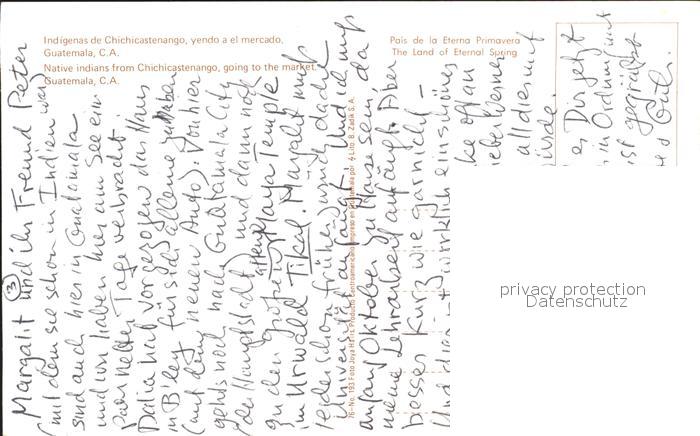 Indígenas de Chichicastenango, yendo a el mercado,
Guatemala, C.A.
Native indians from Chichicastenango, going to the market,
Guatemala, C.A.
País de la Eterna Primavera
The Land of Eternal Spring
76-No. 193 Foto Joya Hairs. Producto Centroamericano impreso en Guatemala por Lito. B. Zadik S.A.
3
Margalit und ihr Freund Peter
(mit dem sie schon in Indien war)
sind auch hier in Guatamala
und wir haben hier am See ein
paar nette Tage verbracht.
Dalia hat vorgezogen das Haus
in B'ley für sich alleine zu haben
(mit dem neuen Auto). Von hier
gehts noch nach Guatamala City
(der Hauptstadt) und dann noch
zu den alten Maya Temple
im Urwald Tikal. Margalit muss
leider schon früher zurück da die
Universität anfängt. Und ich muss
anfang Oktober zu Hause sein da
meine Lehrarbeit anfängt. Aber
besser kurz wie garnicht –
Und dies ist wirklich ein schönes
ke oft an
lieber Werner
all dies mit
würde.
es Dir jetzt
in Ordnung und
ist